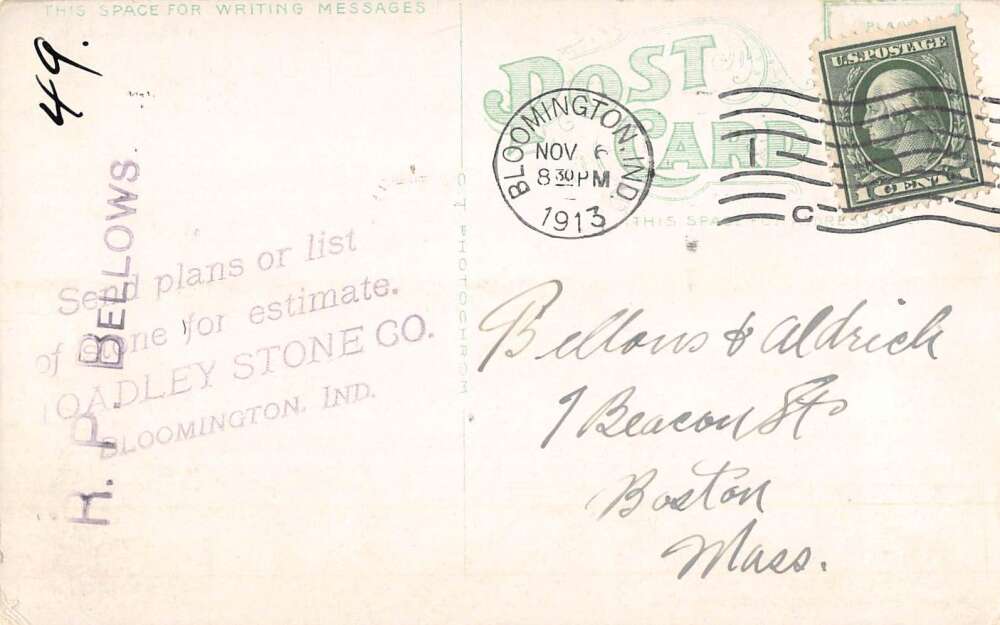 THIS SPACE FOR WRITING MESSAGES
49.
H. P. BELLOWS.
Send plans or list
of stone for estimate.
OADLEY STONE CO.
BLOOMINGTON, IND.
OCTOCHROM
POST
CARD
THIS SPACE
BLOOMINGTON, IND.
NOV 6
8 30 PM
1913
1
C
U.S. POSTAGE
1 CENT 1
Bellows & Aldrich
9 Beacon St
Boston
Mass.